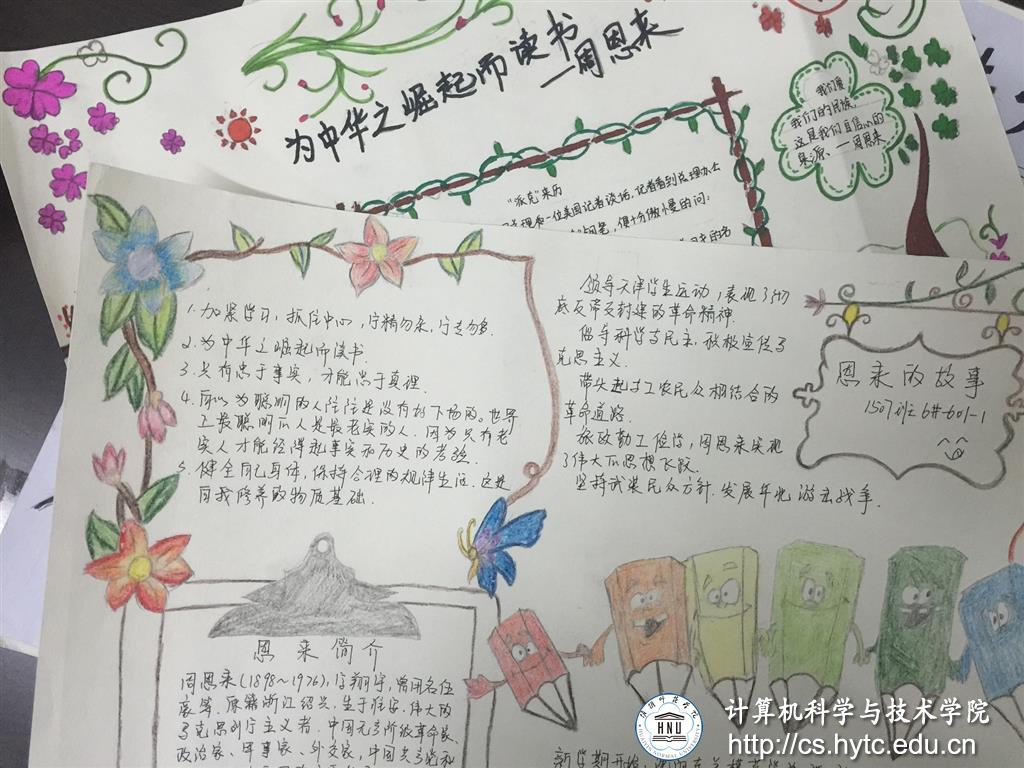 为中华之崛起而读书
—周恩来
我们爱
我们的民族,
这是我们自信心的
泉源、—周恩来
"派克"来历
一位美国记者谈话,记者看到总理办公
钢笔,便十分傲慢的问:
1.加紧学习,抓住中心,宁精勿杂,宁专勿多.
2.为中华之崛起而读书.
3.只有忠于事实,才能忠于真理.
4.自以为聪明的人往往是没有好下场的。世界
上最聪明的人是最老实的人.因为只有老
实人才能经得起事实和历史的考验.
5.健全自己身体,保持合理的规律生活.这是
自我修养的物质基础.
领导天津学生运动,表现了彻
底反帝反封建的革命精神.
倡导科学与民主,积极宣传马
克思主义.
带头走与工农民众相结合的
革命道路.
旅欧勤工俭学,周恩来实现
了伟大的思想飞跃.
坚持武装民众方针.发展华北游击战争.
恩来的故事
1507班6#601-1
恩来简介
周恩来(1898~1976),字翔宇,曾用名伍
豪等.原籍浙江绍兴.生于淮安.伟大的
马克思列宁主义者.中国无产阶级革命家、
政治家、军事家、外交家,中国共产党和
新学期开始,
HNU
计算机科学与技术学院
http://cs.hytc.edu.cn